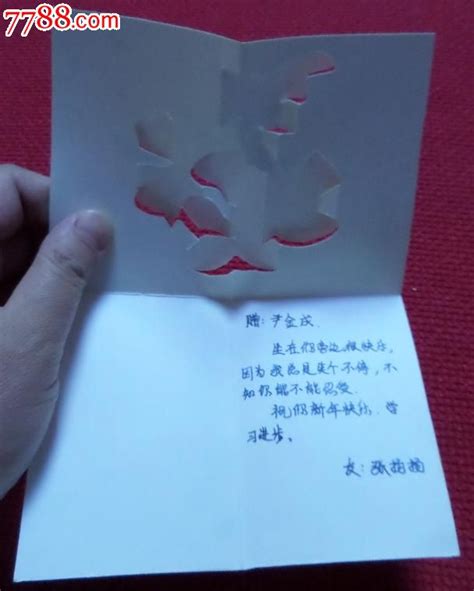 7788.com
赠：尹金成.
坐在你旁边很快乐,
因为我总是笑个不停，不
知你能不能忍受.
祝你新年快乐，学
习进步。
友：张拍拍